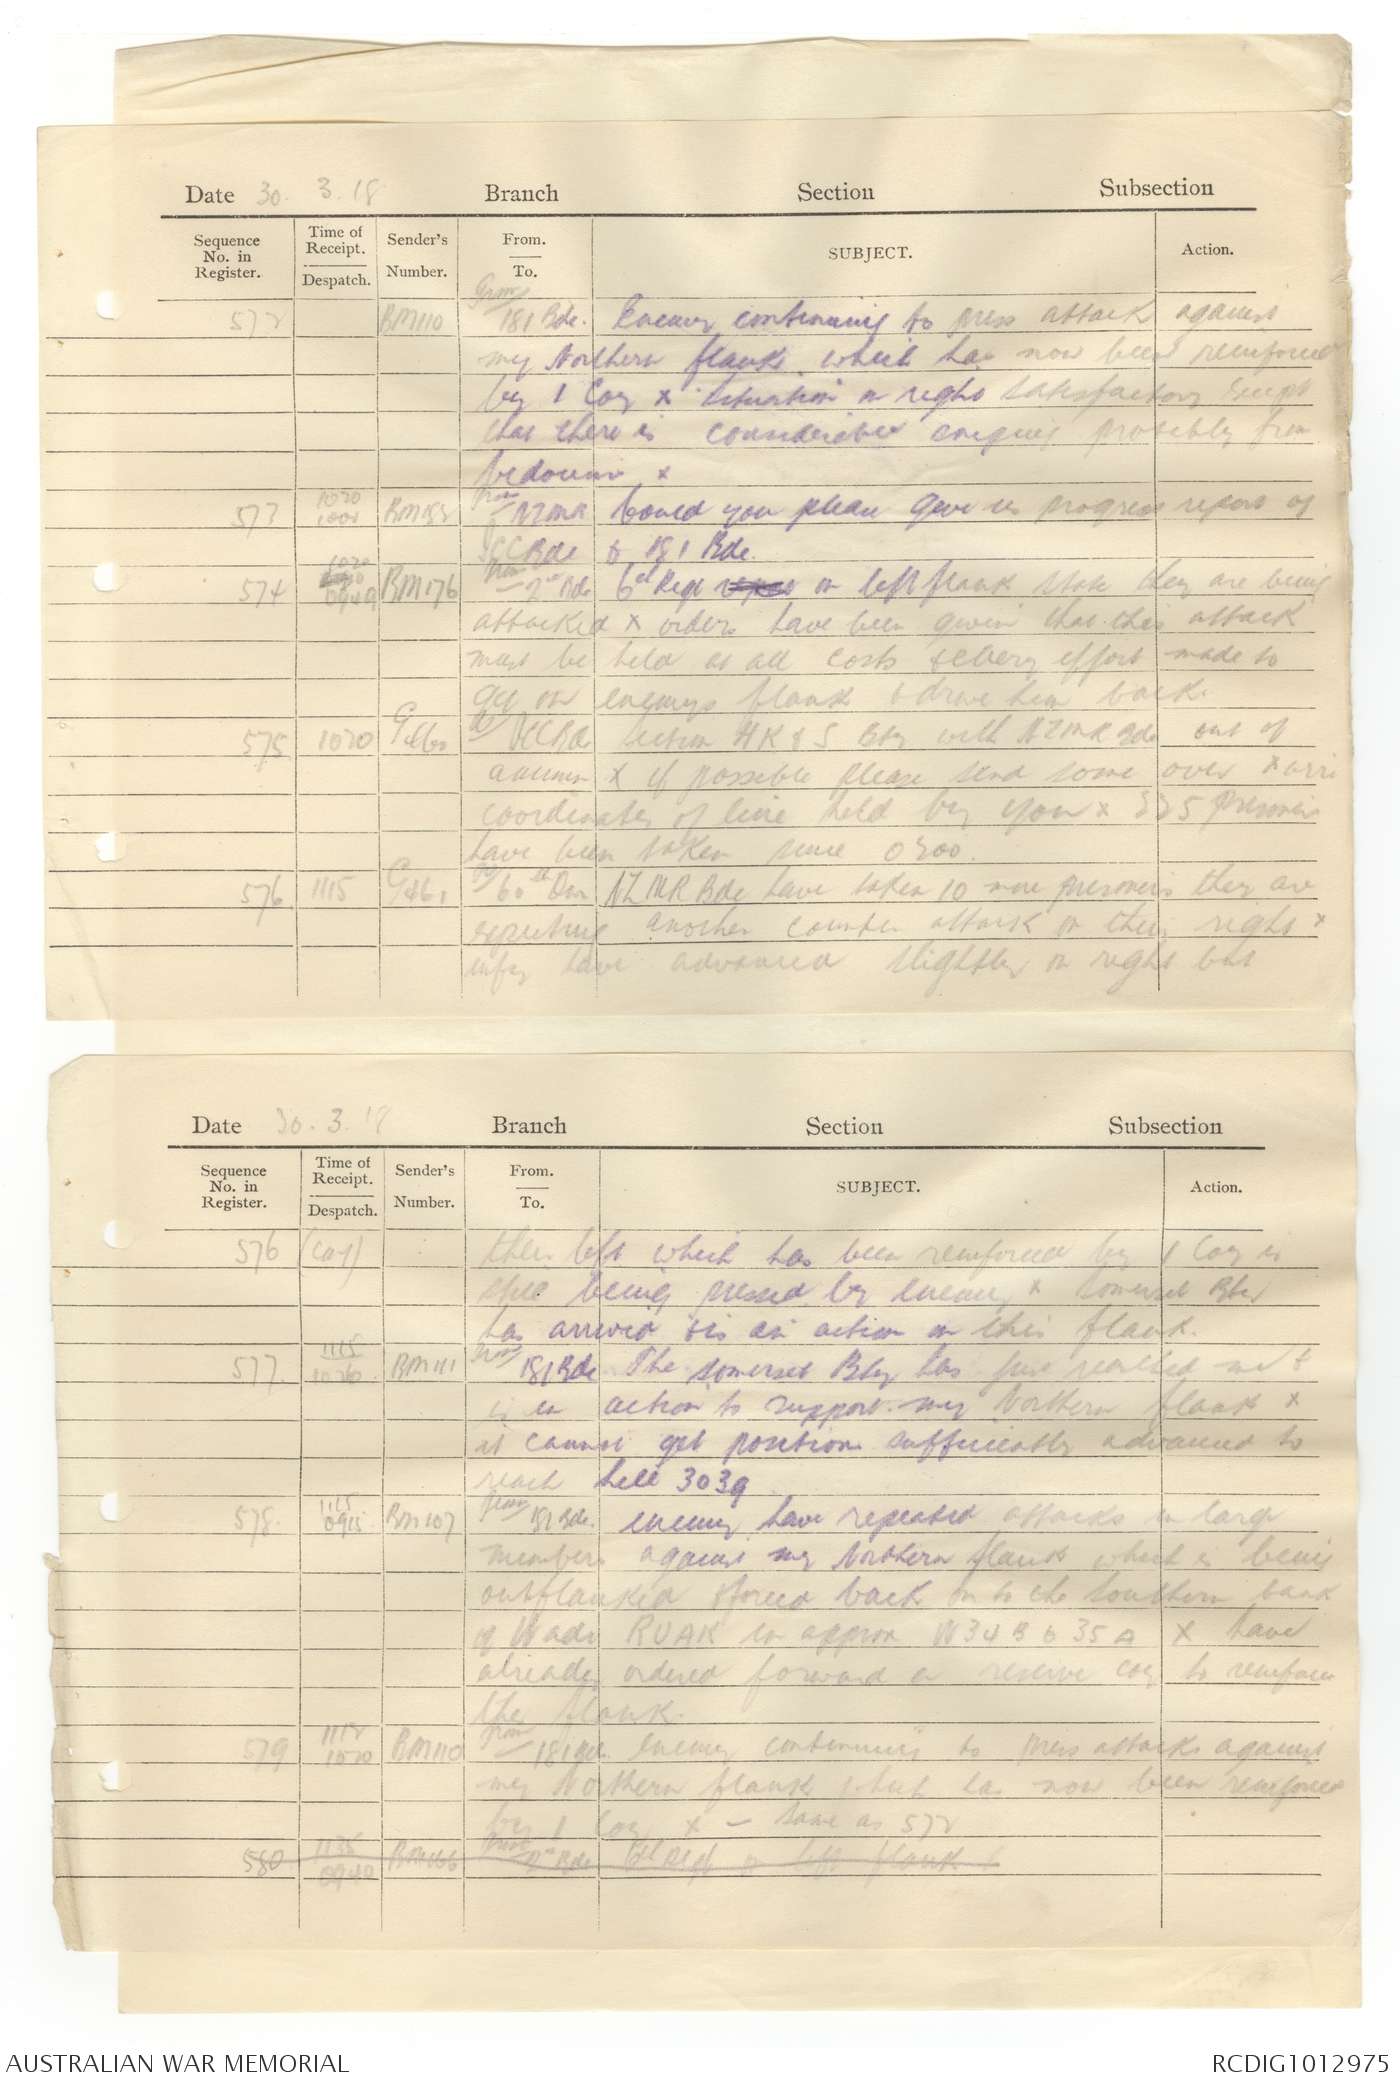 Date 30. 3. 18 Branch Section Subsection
Sequence No. in Register. Time of Receipt. Despatch. Sender's Number. From. To. SUBJECT. Action.
572 BM110 From 181 Bde. Enemy continuing to press attack against
my Northern flank which has now been reinforced
by 1 Coy x situation on right satisfactory except
that there is considerable sniping probably from
bedouin x
573 1020 1001 From NZMR Could you please give us progress report of
ICCBde & 181 Bde.
574 1020 0940 BM176 From 2nd Bde 6th Regt on left flank state they are being
attacked x orders have been given that this attack
must be held at all costs & every effort made to
get on enemys flank & drive him back.
575 1020 G460 to ICCBde section HK & S Bty with NZMR Bde out of
ammn x if possible please send some over x
coordinates of line held by you x prisoners
have been taken since 0200.
576 1115 G461 to 60th Divn NZMR Bde have taken 10 more prisoners they are
reporting another counter attack on their right x
infy have advanced slightly on right but
Date 30. 3. 18 Branch Section Subsection
Sequence No. in Register. Time of Receipt. Despatch. Sender's Number. From. To. SUBJECT. Action.
576 their left which has been reinforced by 1 Coy is
still being pressed by enemy x Somerset Bty
has arrived & is in action on this flank.
577 1115 1020 BM111 From 181 Bde The Somerset Bty has just reached me &
is in action to support my Northern flank x
it cannot get position sufficiently advanced to
reach hill 3039
578. 1115 0915 BM107 From 181 Bde. enemy have repeated attacks in large
numbers against my Northern flank which is being
outflanked & forced back on to the Southern bank
of Wadi RUAK in approx W34B & 35A x have
already ordered forward a reserve coy to reinforce
the flank.
579 1112 1020 BM110 From 181 Bde. Enemy continuing to press attacks against
my Northern flank which has now been reinforced
by 1 Coy x — same as 572
580 1135 0940 From 2nd Bde 6th Regt on left flank
AUSTRALIAN WAR MEMORIAL RCDIG1012975